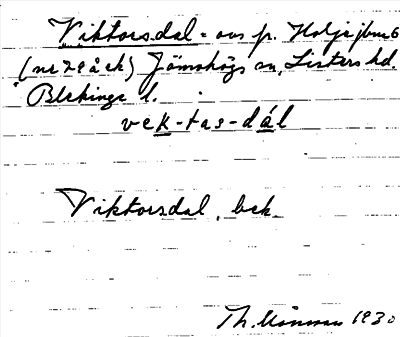 Viktorsdal = avs fr. Holje jbruk
Jämshögs sn, Listers hd.
Blekinge l.
vek-tas-dál
Viktorsdal, bek.
Th. 1930